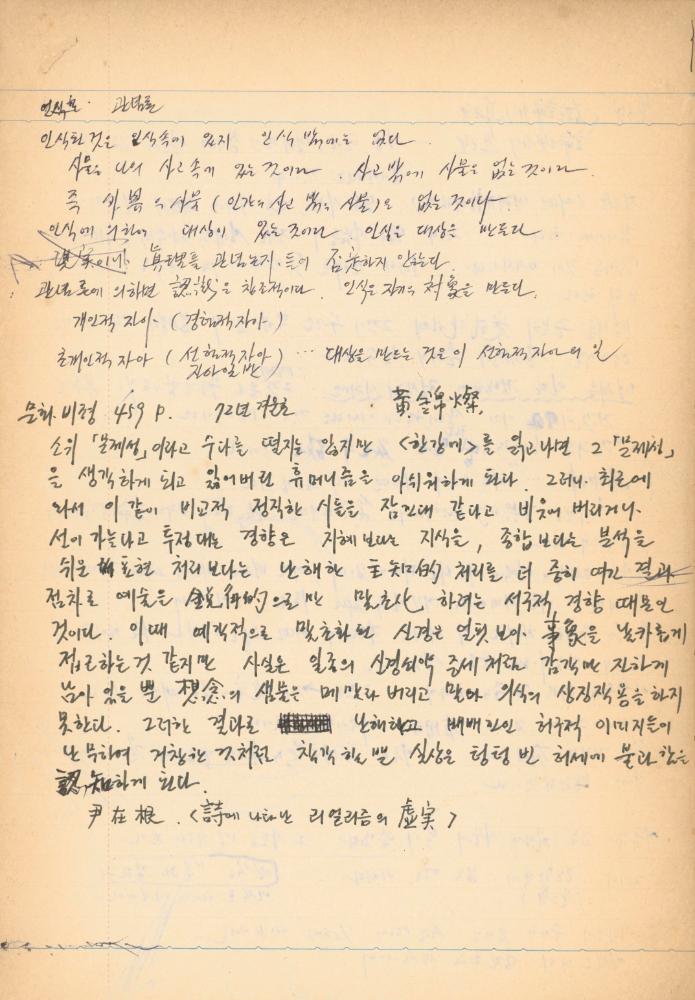 인식론. 관념론
인식된 것은 인식속에 있지 인식 밖에는 없다.
사물은 나의 사고속에 있는 것이다. 사고 밖에 사물은 없는 것이다.
즉 외부의 사물(인간의 사고 밖의 사물)은 없는 것이다.
인식에 의하여 대상이 있는 것이다 인식은 대상을 만든다
眞理를 관념론자들이 否定하지 않는다.
관념론에 의하면 認識은 창조적이다. 인식은 자기의 対象을 만든다.
개인적 자아 (경험적자아)
초개인적 자아 (선험적자아) … 대상을 만드는 것은 이 선험적 자아의 일
자아일반
문화비평 459 P. 72년 겨울호 黃錦燦.
소위 「문제성」이라고 수다를 떨지는 않지만 <한강에>를 읽고나면 그 「문제성」
을 생각하게 되고 잃어버린 휴머니즘을 아쉬워하게 된다. 그러나 최근에
와서 이 같이 비교적 정직한 시들을 잠꼬대 같다고 비웃어 버리거나.
선이 가늘다고 투정대는 경향은 지혜 보다는 지식을, 종합 보다는 분석을
쉬운 표현 처리 보다는 난해한 主知的 처리를 더 중히 여긴 결과
점차로 예술을 銳角的으로만 말초사, 하려는 서구적 경향 때문인
것이다. 이때 예각적으로 말초화된 신경은 얼핏 보아 事象을 날카롭게
접근하는것 같지만 사실은 일종의 신경쇠약 증세처럼 감각만 진하게
남아 있을 뿐 想念의 샘물은 메말라 버리고 말아 의식의 상징작용을 하지
못한다. 그러한 결과로 난해하고 허구적 이미지들이
난무하여 거창한 것처럼 착각 하는 뿐 실상은 텅텅 빈 허세에 불과 함을
認知하게 된다.
尹在根. <詩에 나타난 리얼리즘의 虛実>